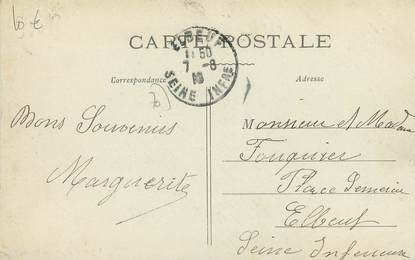 10 €
CARTE POSTALE
ELBEUF
11 50
7 - 8
SEINE INFRE
Correspondance
Adresse
Bons Souvenirs
Marguerite
Monsieur et Madame
Fouquier
Place
Elbeuf
Seine Inférieure